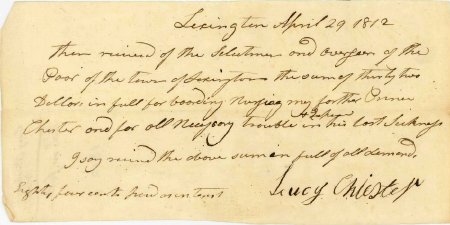 Lexington April 29 1812
then received of the Selectmen and Overseers of the
Poor of the town of Lexington the sum of thirty two
Dollars in full for boarding Nursing my father Prince
Chester and for all Necessary trouble in his last Sickness
I say received the above sum in full of all demands
Lucy Chester
Eighty four cents